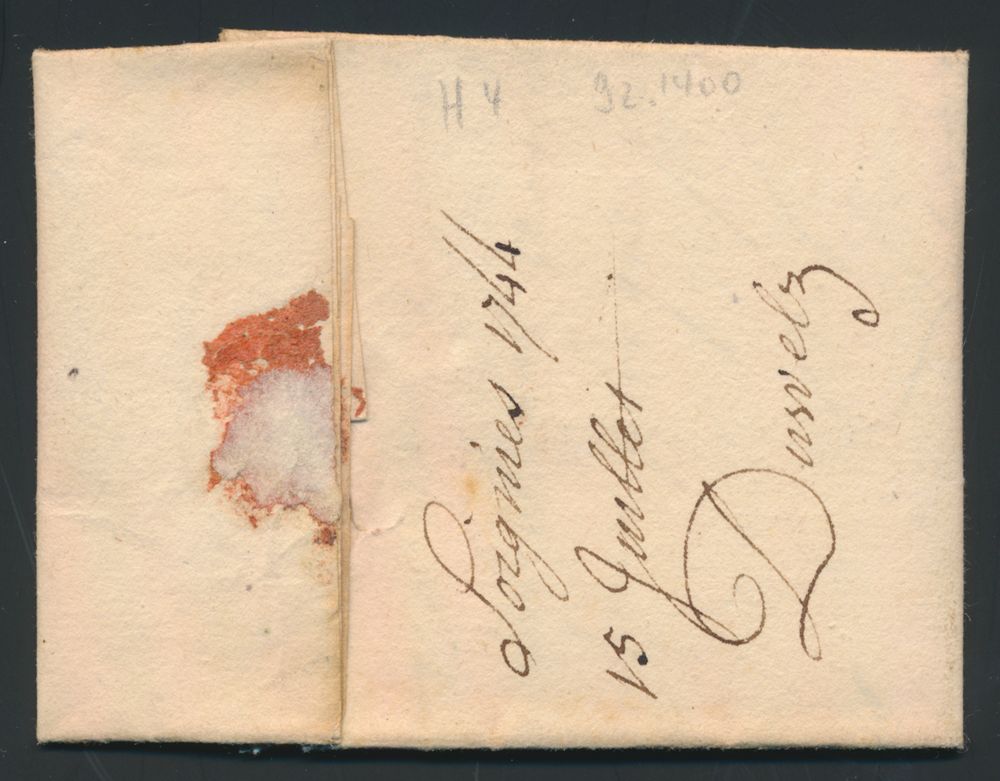 H 4 gz. 1400
Soignies 1744
15 Juillet
Duvelz